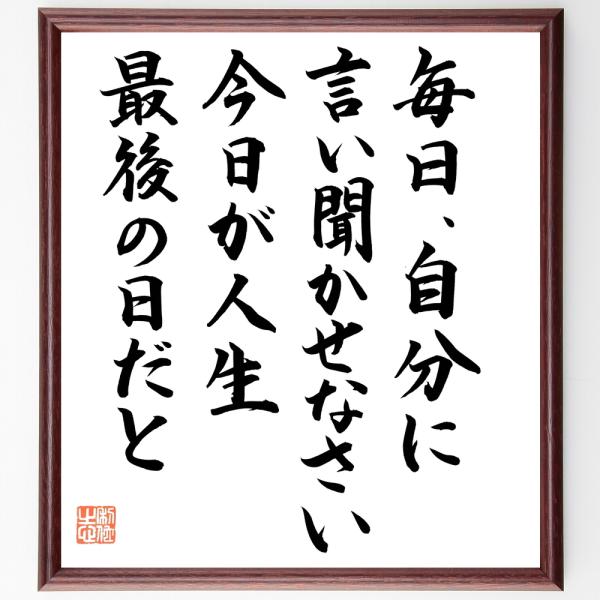 毎日、自分に
言い聞かせなさい
今日が人生
最後の日だと